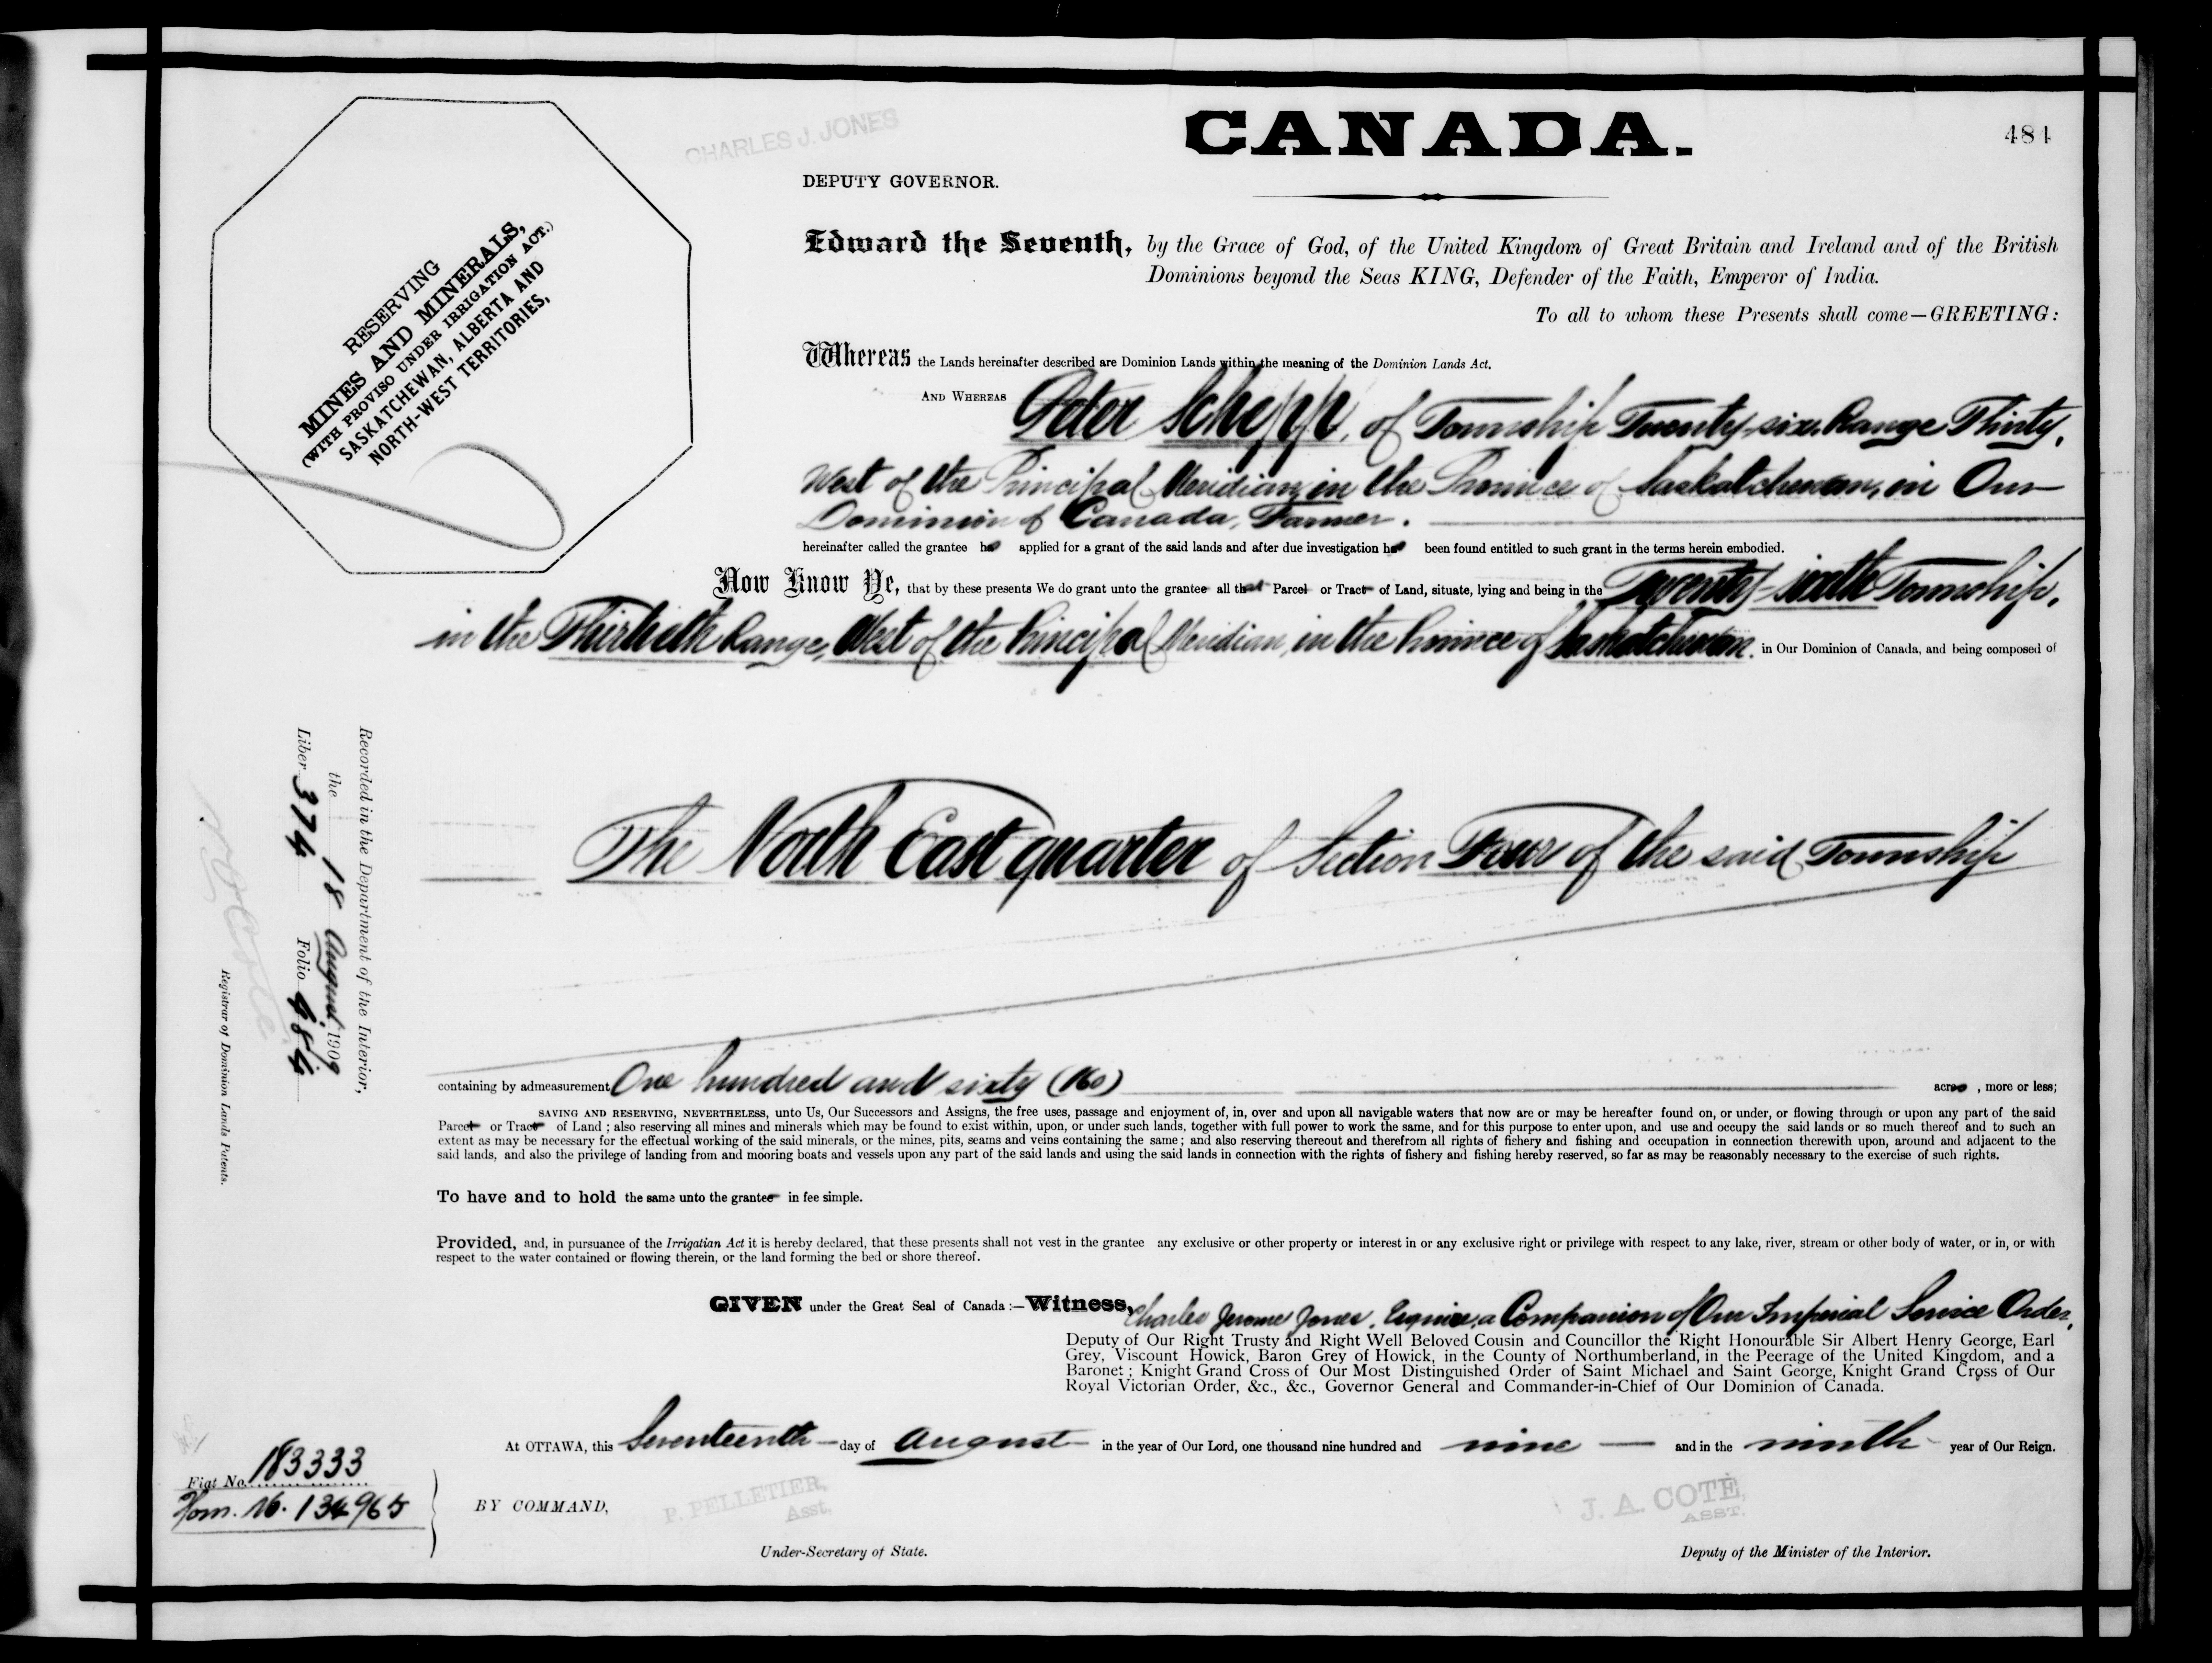 CHARLES J. JONES
CANADA.
484
DEPUTY GOVERNOR.
RESERVING
MINES AND MINERALS,
(WITH PROVISO UNDER IRRIGATION ACT.)
SASKATCHEWAN, ALBERTA AND
NORTH-WEST TERRITORIES,
Edward the Seventh, by the Grace of God, of the United Kingdom of Great Britain and Ireland and of the British
Dominions beyond the Seas KING, Defender of the Faith, Emperor of India.
To all to whom these Presents shall come—GREETING:
Whereas the Lands hereinafter described are Dominion Lands within the meaning of the Dominion Lands Act.
AND WHEREAS Peter Schepp, of Township Twenty-six, Range Thirty,
West of the Principal Meridian, in the Province of Saskatchewan, in Our
Dominion of Canada, Farmer.
hereinafter called the grantee has applied for a grant of the said lands and after due investigation has been found entitled to such grant in the terms herein embodied.
Now Know Ye, that by these presents We do grant unto the grantee all that Parcel or Tract of Land, situate, lying and being in the Twenty-sixth Township,
in the Thirtieth Range, West of the Principal Meridian, in the Province of Saskatchewan. in Our Dominion of Canada, and being composed of
The North East quarter of Section Four of the said Township
containing by admeasurement One hundred and sixty (160) acres, more or less;
SAVING AND RESERVING, NEVERTHELESS, unto Us, Our Successors and Assigns, the free uses, passage and enjoyment of, in, over and upon all navigable waters that now are or may be hereafter found on, or under, or flowing through or upon any part of the said
Parcel or Tract of Land ; also reserving all mines and minerals which may be found to exist within, upon, or under such lands, together with full power to work the same, and for this purpose to enter upon, and use and occupy the said lands or so much thereof and to such an
extent as may be necessary for the effectual working of the said minerals, or the mines, pits, seams and veins containing the same ; and also reserving thereout and therefrom all rights of fishery and fishing and occupation in connection therewith upon, around and adjacent to the
said lands, and also the privilege of landing from and mooring boats and vessels upon any part of the said lands and using the said lands in connection with the rights of fishery and fishing hereby reserved, so far as may be reasonably necessary to the exercise of such rights.
To have and to hold the same unto the grantee in fee simple.
Provided, and, in pursuance of the Irrigatian Act it is hereby declared, that these presents shall not vest in the grantee any exclusive or other property or interest in or any exclusive right or privilege with respect to any lake, river, stream or other body of water, or in, or with
respect to the water contained or flowing therein, or the land forming the bed or shore thereof.
GIVEN under the Great Seal of Canada :—Witness, Charles Jerome Jones, Esquire, a Companion of Our Imperial Service Order,
Deputy of Our Right Trusty and Right Well Beloved Cousin and Councillor the Right Honourable Sir Albert Henry George, Earl
Grey, Viscount Howick, Baron Grey of Howick, in the County of Northumberland, in the Peerage of the United Kingdom, and a
Baronet ; Knight Grand Cross of Our Most Distinguished Order of Saint Michael and Saint George, Knight Grand Cross of Our
Royal Victorian Order, &c., &c., Governor General and Commander-in-Chief of Our Dominion of Canada.
At OTTAWA, this Seventeenth day of August in the year of Our Lord, one thousand nine hundred and nine and in the ninth year of Our Reign.
BY COMMAND,
P. PELLETIER,
Asst.
Under-Secretary of State.
J. A. COTÈ,
ASST.
Deputy of the Minister of the Interior.
Recorded in the Department of the Interior,
the 18 August 1909
Liber 374 Folio 484
Registrar of Dominion Lands Patents.
Fiat No. 183333
Hom. 16. 134965